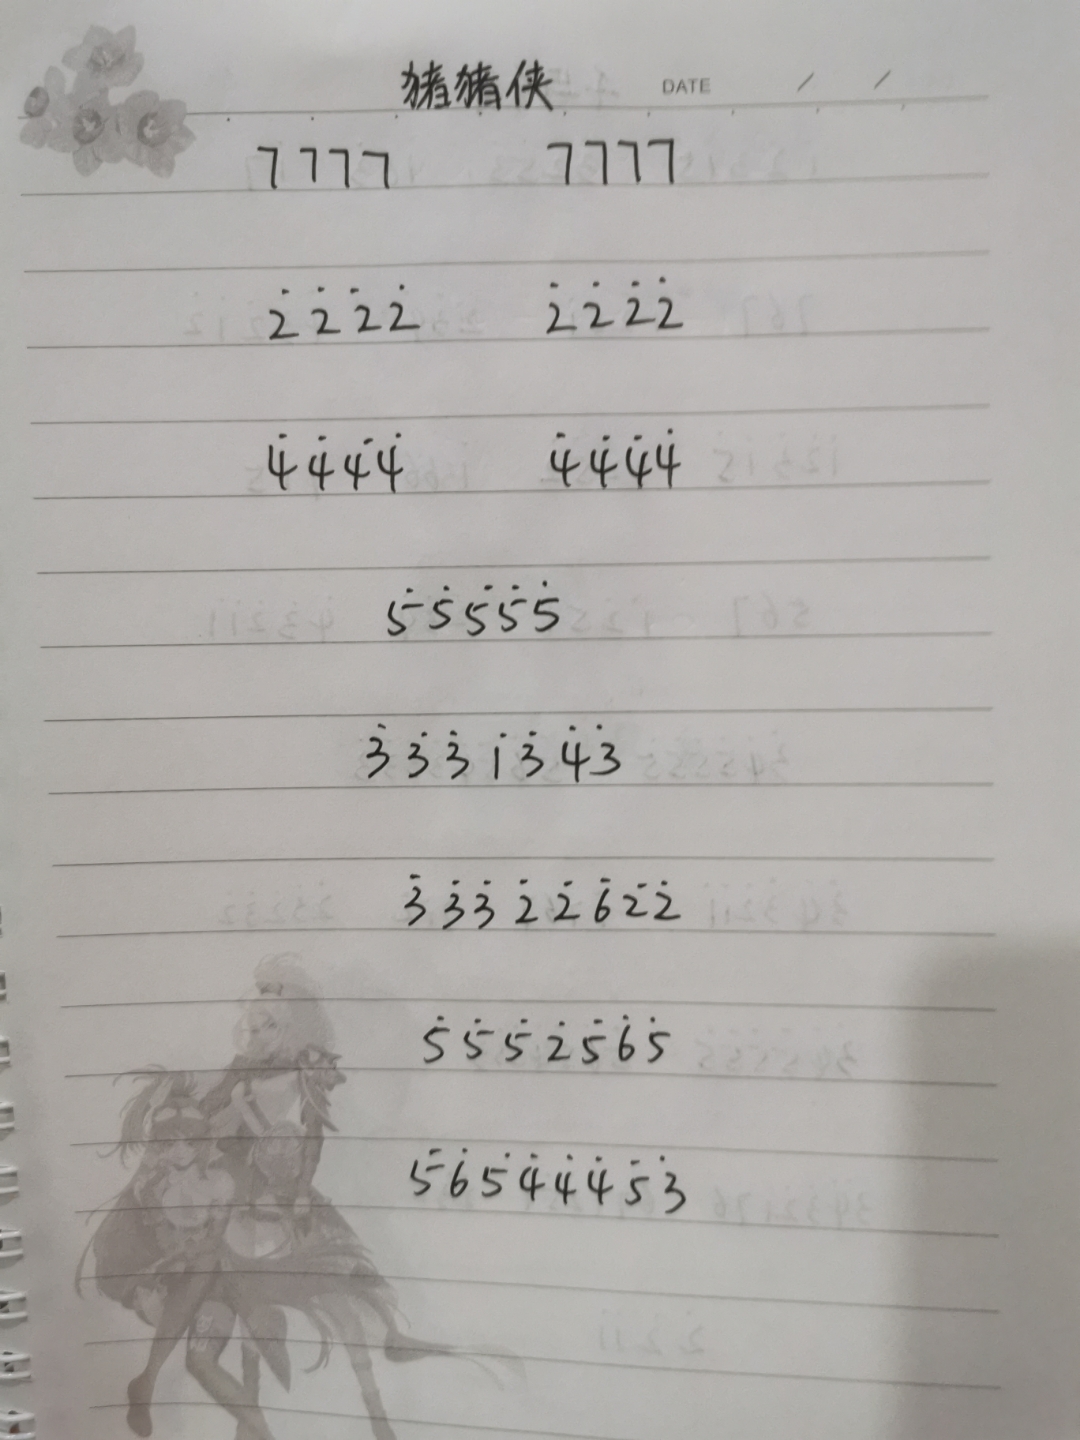 猪猪侠 DATE / /
7777 7777
2̇2̇2̇2̇ 2̇2̇2̇2̇
4̇4̇4̇4̇ 4̇4̇4̇4̇
5̇5̇5̇5̇5̇
3̇3̇3̇1̇3̇4̇3̇
3̇3̇3̇2̇2̇6̇2̇2̇
5̇5̇5̇2̇5̇6̇5̇
5̇6̇5̇4̇4̇4̇5̇3̇